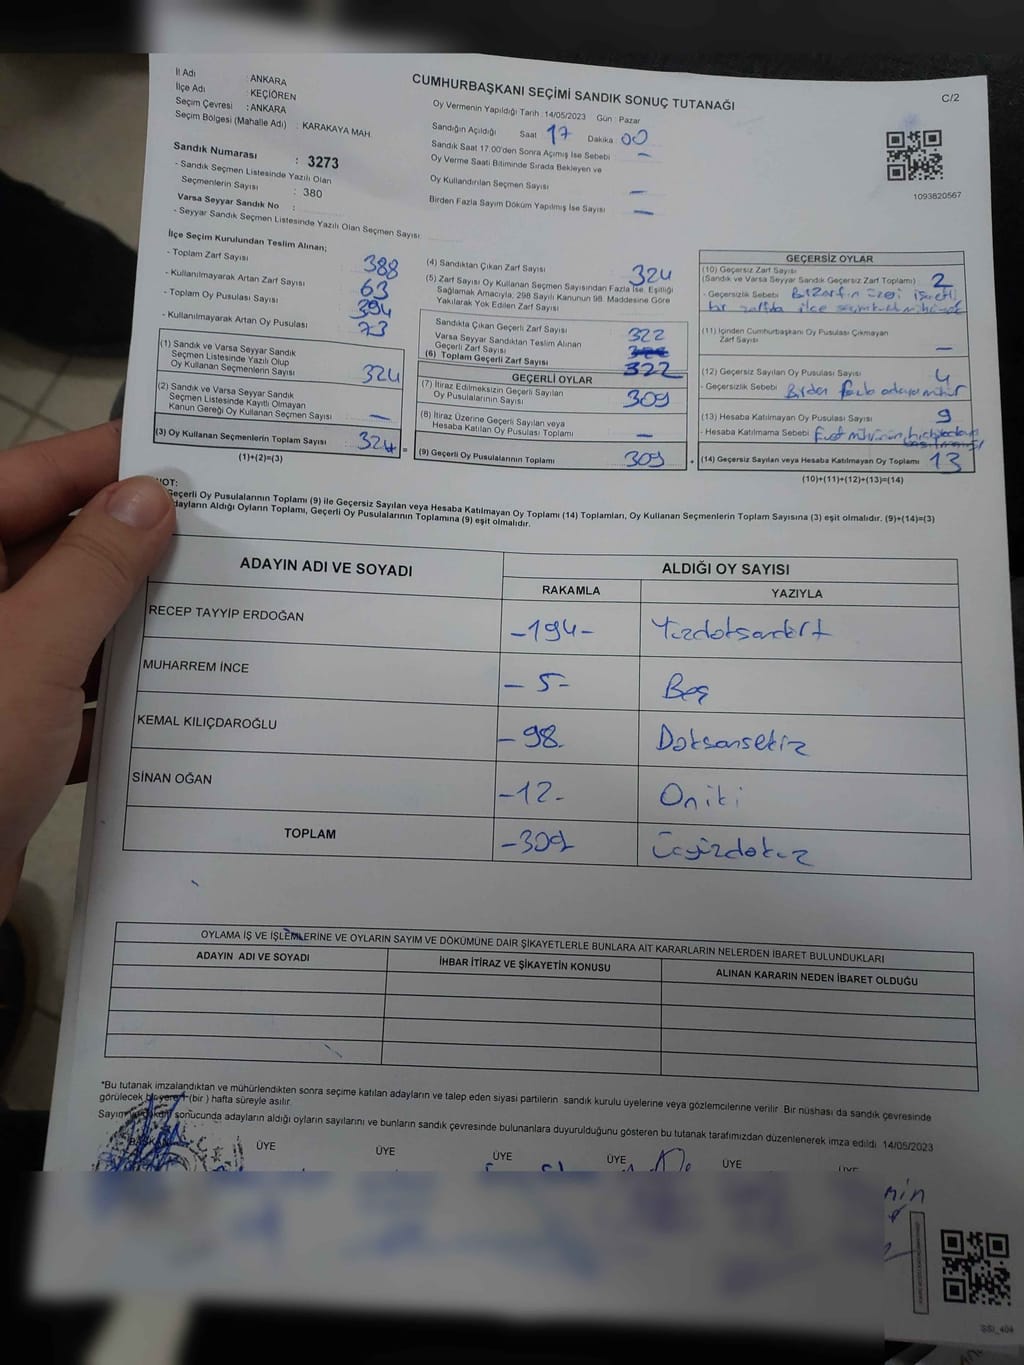 İl Adı : ANKARA
İlçe Adı : KEÇİÖREN
Seçim Çevresi : ANKARA
Seçim Bölgesi (Mahalle Adı) : KARAKAYA MAH.
Sandık Numarası : 3273
- Sandık Seçmen Listesinde Yazılı Olan
Seçmenlerin Sayısı : 380
Varsa Seyyar Sandık No :
- Seyyar Sandık Seçmen Listesinde Yazılı Olan Seçmen Sayısı:
CUMHURBAŞKANI SEÇİMİ SANDIK SONUÇ TUTANAĞI
C/2
Oy Vermenin Yapıldığı Tarih : 14/05/2023 Gün : Pazar
Sandığın Açıldığı Saat 17 Dakika 00
Sandık Saat 17:00'den Sonra Açımış İse Sebebi –
Oy Verme Saati Bitiminde Sırada Bekleyen ve
Oy Kullandırılan Seçmen Sayısı –
Birden Fazla Sayım Döküm Yapılmış İse Sayısı –
1093820567
İlçe Seçim Kurulundan Teslim Alınan;
- Toplam Zarf Sayısı 388
- Kullanılmayarak Artan Zarf Sayısı 63
- Toplam Oy Pusulası Sayısı 394
- Kullanılmayarak Artan Oy Pusulası 73
(1) Sandık ve Varsa Seyyar Sandık
Seçmen Listesinde Yazılı Olup
Oy Kullanan Seçmenlerin Sayısı 324
(2) Sandık ve Varsa Seyyar Sandık
Seçmen Listesinde Kayıtlı Olmayan
Kanun Gereği Oy Kullanan Seçmen Sayısı –
(3) Oy Kullanan Seçmenlerin Toplam Sayısı 324 =
(1)+(2)=(3)
(4) Sandıktan Çıkan Zarf Sayısı 324
(5) Zarf Sayısı Oy Kullanan Seçmen Sayısından Fazla İse, Eşitliği
Sağlamak Amacıyla; 298 Sayılı Kanunun 98. Maddesine Göre
Yakılarak Yok Edilen Zarf Sayısı
Sandıkta Çıkan Geçerli Zarf Sayısı 322
Varsa Seyyar Sandıktan Teslim Alınan
Geçerli Zarf Sayısı
(6) Toplam Geçerli Zarf Sayısı 322
GEÇERLİ OYLAR
(7) İtiraz Edilmeksizin Geçerli Sayılan
Oy Pusulalarının Sayısı 309
(8) İtiraz Üzerine Geçerli Sayılan veya
Hesaba Katılan Oy Pusulası Toplamı –
(9) Geçerli Oy Pusulalarının Toplamı 309 +
GEÇERSİZ OYLAR
(10) Geçersiz Zarf Sayısı
(Sandık ve Varsa Seyyar Sandık Geçersiz Zarf Toplamı) 2
- Geçersizlik Sebebi Bir zarfın üzeri işaretli
bir zarfda ilçe seçim
(11) İçinden Cumhurbaşkanı Oy Pusulası Çıkmayan
Zarf Sayısı –
(12) Geçersiz Sayılan Oy Pusulası Sayısı 4
- Geçersizlik Sebebi Birden fazla adaya mühür
(13) Hesaba Katılmayan Oy Pusulası Sayısı 9
- Hesaba Katılmama Sebebi Evet mührünün
(14) Geçersiz Sayılan veya Hesaba Katılmayan Oy Toplamı 13
(10)+(11)+(12)+(13)=(14)
NOT:
Geçerli Oy Pusulalarının Toplamı (9) ile Geçersiz Sayılan veya Hesaba Katılmayan Oy Toplamı (14) Toplamları, Oy Kullanan Seçmenlerin Toplam Sayısına (3) eşit olmalıdır. (9)+(14)=(3)
Adayların Aldığı Oyların Toplamı, Geçerli Oy Pusulalarının Toplamına (9) eşit olmalıdır.
ADAYIN ADI VE SOYADI ALDIĞI OY SAYISI
RAKAMLA YAZIYLA
RECEP TAYYİP ERDOĞAN -194- Yüzdoksandört
MUHARREM İNCE - 5- Beş
KEMAL KILIÇDAROĞLU - 98. Doksansekiz
SİNAN OĞAN -12- Oniki
TOPLAM -309 Üçyüzdokuz
OYLAMA İŞ VE İŞLEMLERİNE VE OYLARIN SAYIM VE DÖKÜMÜNE DAİR ŞİKAYETLERLE BUNLARA AİT KARARLARIN NELERDEN İBARET BULUNDUKLARI
ADAYIN ADI VE SOYADI İHBAR İTİRAZ VE ŞİKAYETİN KONUSU ALINAN KARARIN NEDEN İBARET OLDUĞU
*Bu tutanak imzalandıktan ve mühürlendikten sonra seçime katılan adayların ve talep eden siyasi partilerin sandık kurulu üyelerine veya gözlemcilerine verilir. Bir nüshası da sandık çevresinde
görülecek bir yere 1 (bir ) hafta süreyle asılır.
Sayım sonucunda adayların aldığı oyların sayılarını ve bunların sandık çevresinde bulunanlara duyurulduğunu gösteren bu tutanak tarafımızdan düzenlenerek imza edildi. 14/05/2023
BAŞKAN ÜYE ÜYE ÜYE ÜYE ÜYE ÜYE
SSİ_404